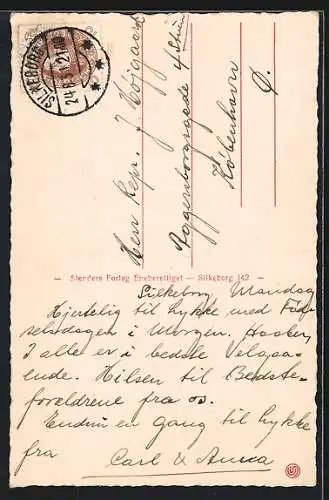 SILKEBORG
24.8.31.21-
Herr Repr. J. Højgaard
Eggersborgsgade 4 Stuen
København
Ø.
Stenders Forlag Eneberettiget — Silkeborg 142
Silkeborg Mandag
Hjertelig til Lykke med Fød-
selsdagen i Morgen. Haaber
I alle er i bedste Velgaa-
ende. Hilsen til Bedste-
forældrene fra os.
Endnu en Gang til Lykke
fra
Carl & Anna